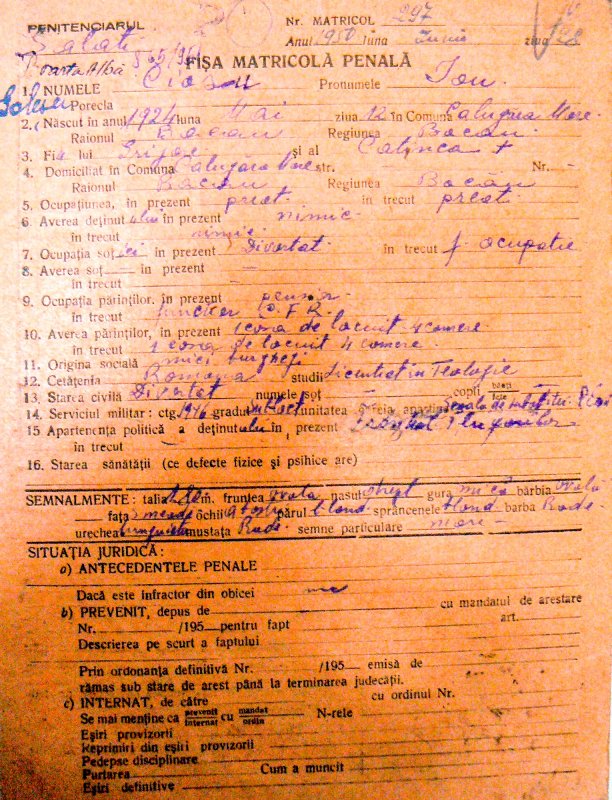 PENITENCIARUL
Galati
Nr. MATRICOL 297
Anul 1950 luna Iunie ziua 28
Poarta Albă
FIȘA MATRICOLĂ PENALĂ
1. NUMELE Pronumele Ion
Porecla
2. Născut în anul 1924 luna Mai ziua 12 în Comuna Calugara Mare
Raionul Bacau Regiunea Bacau
3. Fi lui Grijore și al Catinca +
4. Domiciliat în Comuna Calugăra Mare str. Nr. -
Raionul Bacău Regiunea Bacău
5. Ocupațiunea, în prezent preot în trecut preot
6. Averea deținut ului în prezent nimic
în trecut nimic
7. Ocupația soț iei în prezent Divortat în trecut f. ocupatie
8. Averea soț în prezent -
în trecut
9. Ocupația părinților, în prezent pensior
în trecut C.F.R.
10. Averea părinților, în prezent 1 casa de locuit 4 camere
în trecut 1 casa de locuit 4 camere
11. Origina socială mici burgheji
12. Cetățenia Romana studii Licentiat in Teologie
13. Starea civila Divortat numele soț copii băeți fete
14. Serviciul militar: ctg. 1946 gradul unitatea
15 Apartenența politică a deținut ului în prezent
în trecut
16. Starea sănătății (ce defecte fizice și psihice are)
SEMNALMENTE: talia m. fruntea ovala nasul drept gura mică bărbia ovala
fața ochii părul blond sprâncenele blond barba Rade
urechea mustața Rade semne particulare -
SITUAȚIA JURIDICĂ:
a) ANTECEDENTELE PENALE
Dacă este infractor din obicei nu
b) PREVENIT, depus de cu mandatul de arestare
Nr. /195 pentru fapt art.
Descrierea pe scurt a faptului
Prin ordonanța definitivă Nr. /195 emisă de
rămas sub stare de arest până la terminarea judecății.
c) INTERNAT, de către cu ordinul Nr.
Se mai menține ca prevenit internat cu mandat ordin N-rele
Eșiri provizorii
Reprimiri din eșiri provizorii
Pedepse disciplinare
Purtarea Cum a muncit
Eșiri definitive